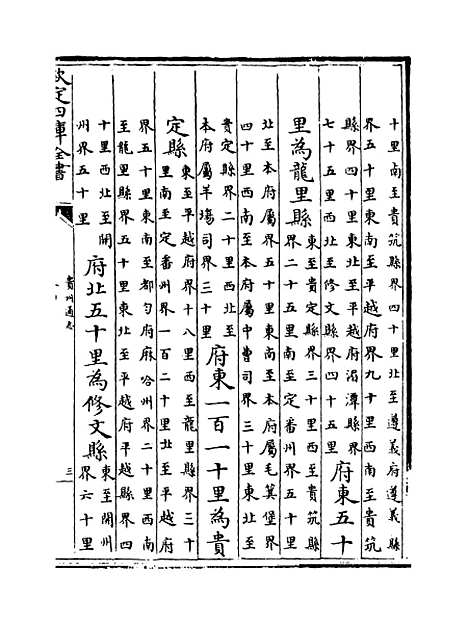 十里南至貴筑縣界四十里北至遵義府遵義縣
界五十里東南至平越府界九十里西南至貴筑
縣界四十里東北至平越府湄潭縣界
七十五里西北至修文縣界四十五里
府東五十
里為龍里縣
東至貴定縣界三十里西至貴筑縣
界二十五里南至定番州界五十里
北至本府屬界五十里東南至本府屬毛蓂堡界
四十里西南至本府屬中曹司界三十里東北至
貴定縣界二十里西北至
本府屬羊塲司界三十里
府東一百一十里為貴
定縣
東至平越府界十八里西至龍里縣界三十
里南至定番州界一百二十里北至平越府
界五十里東南至都勻府麻哈州界二十里西南
至龍里縣界五十里東北至平越府平越縣界四
十里西北至開
州界五十里
府北五十里為修文縣
東至開州
界六十里
欽定四庫全書
貴州通志
三